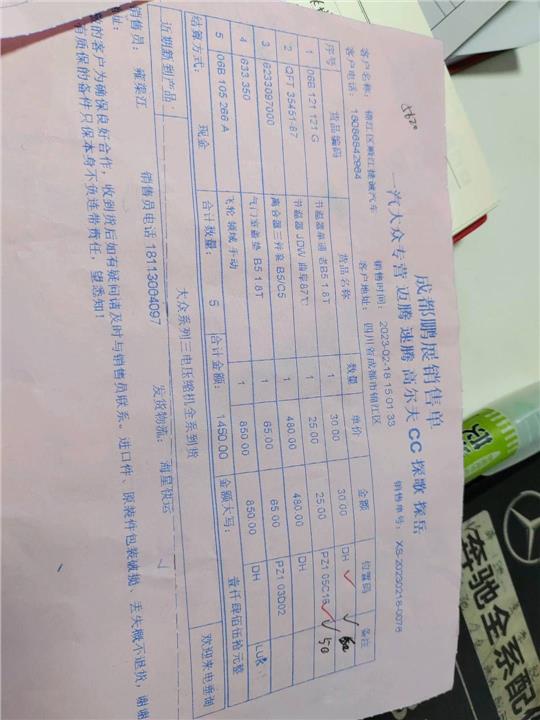 成都鹏展销售单
一汽大众专营 迈腾 速腾 高尔夫 CC 探歌 探岳
5620
客户名称: 锦江区顺江捷诚汽车 销售时间: 2023-02-18 15:01:33 销售单号: XS-20230218-0078
客户电话: 18086842984 客户地址: 四川省成都市锦江区
序号 货品编码 货品名称 数量 单价 金额 位置码 备注
1 06B 121 121 G 节温器单诵 老B5 1.8T 1 30.00 30.00 DH
2 QFT 35451-87 节温器 JDW 曲阜87℃ 1 25.00 25.00 PZ1 05C16 50
3 6233097000 离合器三件套 B5/C5 1 480.00 480.00 DH
4 633.350 气门室盖垫 B5 1.8T 1 65.00 65.00 PZ1 03D02
5 06B 105 266 A 飞轮 领域 手动 1 850.00 850.00 DH LUK
结算方式: 现金 合计数量: 5 合计金额: 1450.00 金额大写: 壹仟肆佰伍拾元整
近期新到产品: 大众系列三电压缩机全系到货 欢迎来电垂询
销售员: 雍荣江 销售员电话 18113064097 发货物流: 海星快运
的客户为确保良好合作, 收到货后如有疑问请及时与销售员联系。进口件、原装件包装破损、丢失概不退货, 谢谢
质保的备件只保本身不负连带责任, 望悉知!
奔驰全系配